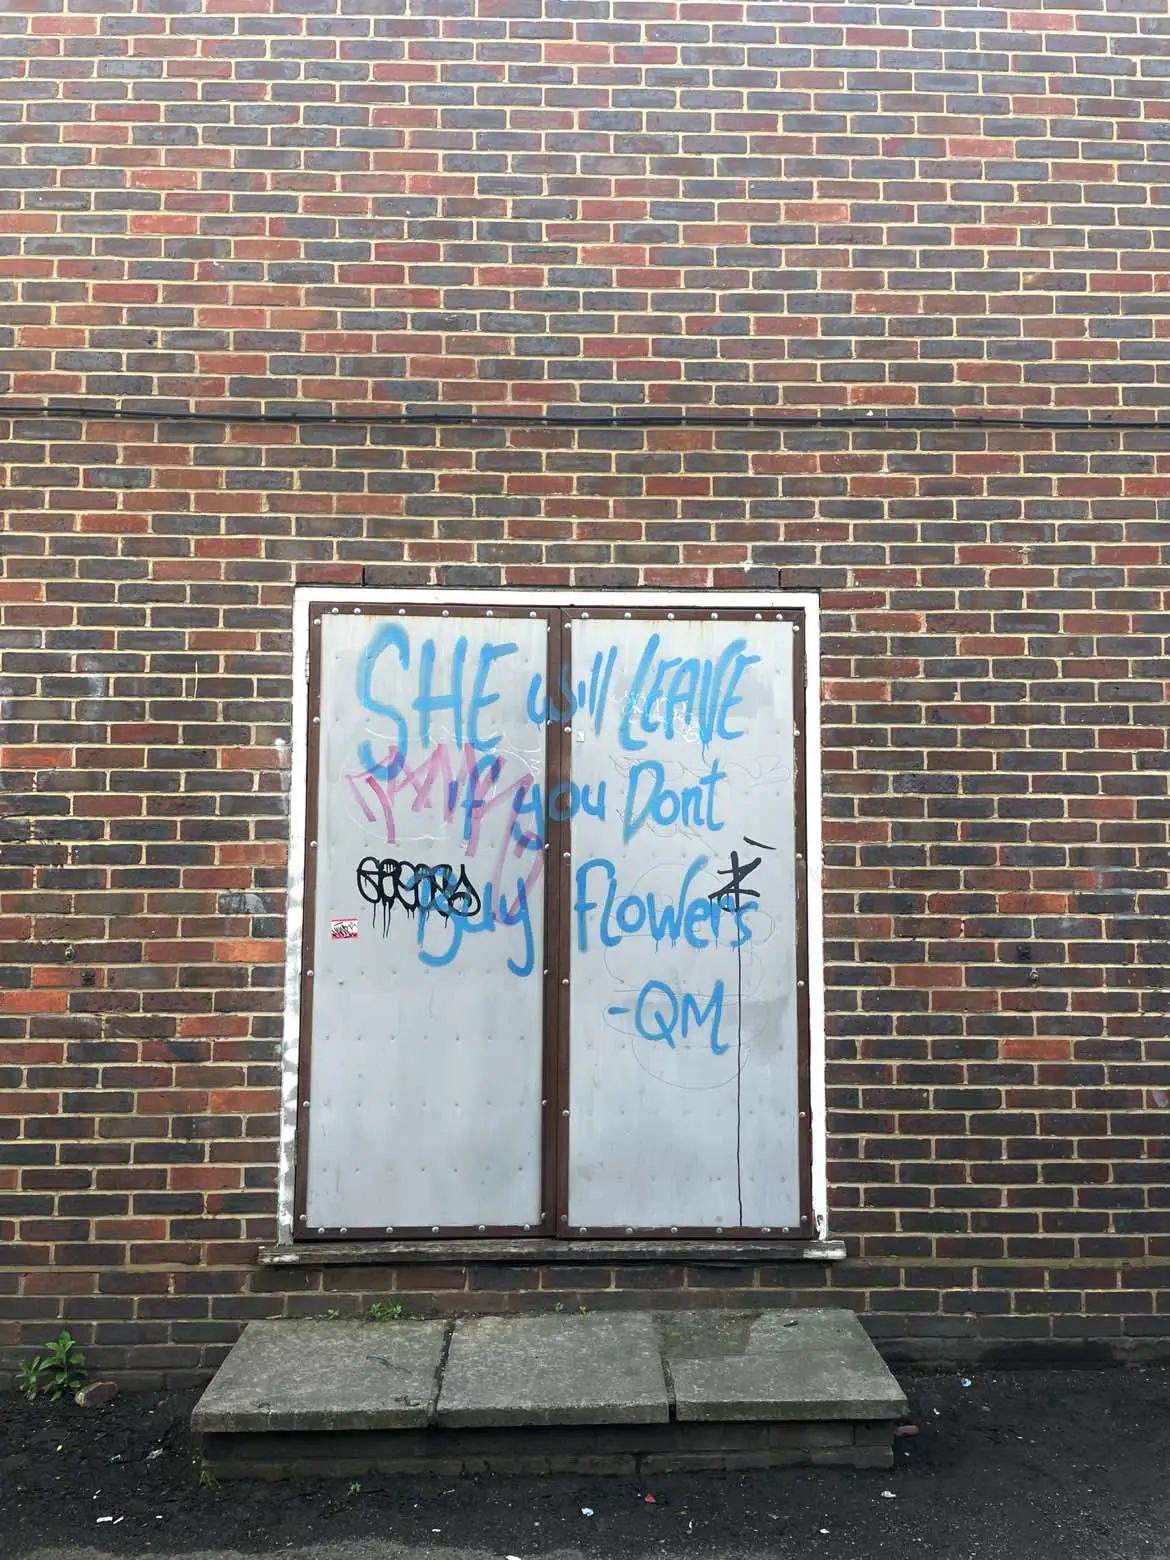 SHE will LEAVE
if you Dont
Buy Flowers
-QM